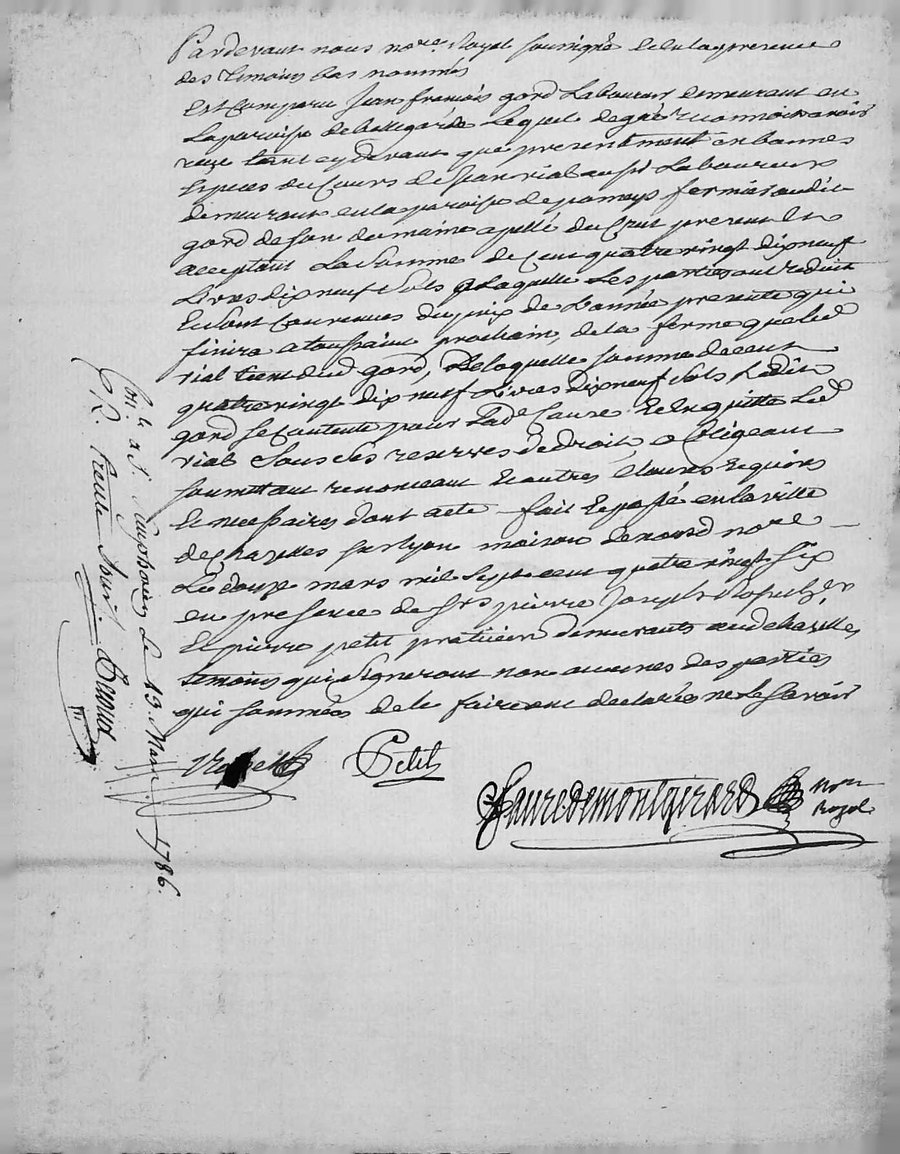 Pardevant nous no.re Royal soussigné & en la presence
des temoins bas nommés
est comparu Jean francois gord Laboureur demeurant en
La paroisse de bellegarde Lequel de gré reconnoit avoir
reçu tant cydevant que presentement en bonnes
especes du Cours de Jean vial aussi Laboureur
demeurant en la paroisse de pomeys fermier dudit
gord de son domaine apellé du Crut present &
acceptant La somme de Cent quatre vingt dix neuf
Livres dix neuf sols a Laquelle Les parties ont reduit
& sont Convenues du prix de L'année presente qui
finira a toussaint prochain, de la ferme que led
vial tient dud gord, De laquelle somme de cent
quatre vingt dix neuf Livres dix neuf sols Ledit
gord se Contente pour Lad. Cause & en quitte Led
vial sous les reserves de droit, obligeant
soumettant renonceant & autres Clauses requises
& necessaires dont acte fait & passé en la ville
de chazelles sur lyon maison de nousd no.re
Le douze mars mil sept cent quatre vingt six
en presence de srs pierre Joseph
& pierre petit praticien demeurants aud chazelles
temoins qui signeront non aucunes des parties
qui sommées de le faire ont declarées ne le savoir
Petit
Faure demontgirard no.re
Royal
Con.lé a S. Simphorien Le 13 Mars 1786.
R. trente sous.